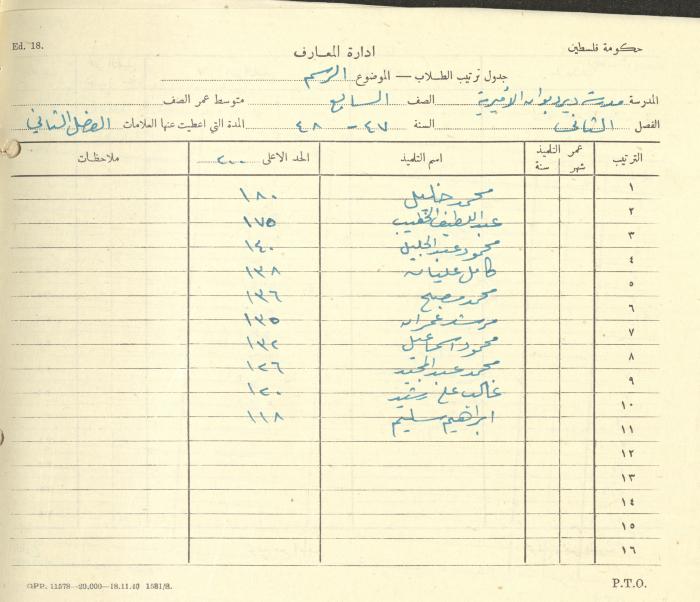 Ed. 18.
حكومة فلسطين
ادارة المعارف
جدول ترتيب الطلاب — الموضوع الرسم
المدرسة مدرسة ديرديوان الأميرية الصف السابع متوسط عمر الصف
الفصل الثاني السنة ٤٧ - ٤٨ المدة التي اعطيت عنها العلامات الفصل الثاني
الترتيب عمر التلميذ شهر سنة اسم التلميذ الحد الاعلى ٢٠٠ ملاحظات
١ محمد خليل ١٨٠
٢ عبد اللطيف الخطيب ١٧٥
٣ محمود عبد الجليل ١٤٠
٤ كامل عليان ١٣٨
٥ محمد مصبح ١٣٦
٦ مرشد عمران ١٣٥
٧ محمود اسماعيل ١٣٢
٨ محمد عبد المجيد ١٢٦
٩ غالب علي رشيد ١٢٠
١٠ ابراهيم سليم ١١٨
١١
١٢
١٣
١٤
١٥
١٦
GPP. 11578—20,000—18.11.40 1581/S.
P.T.O.